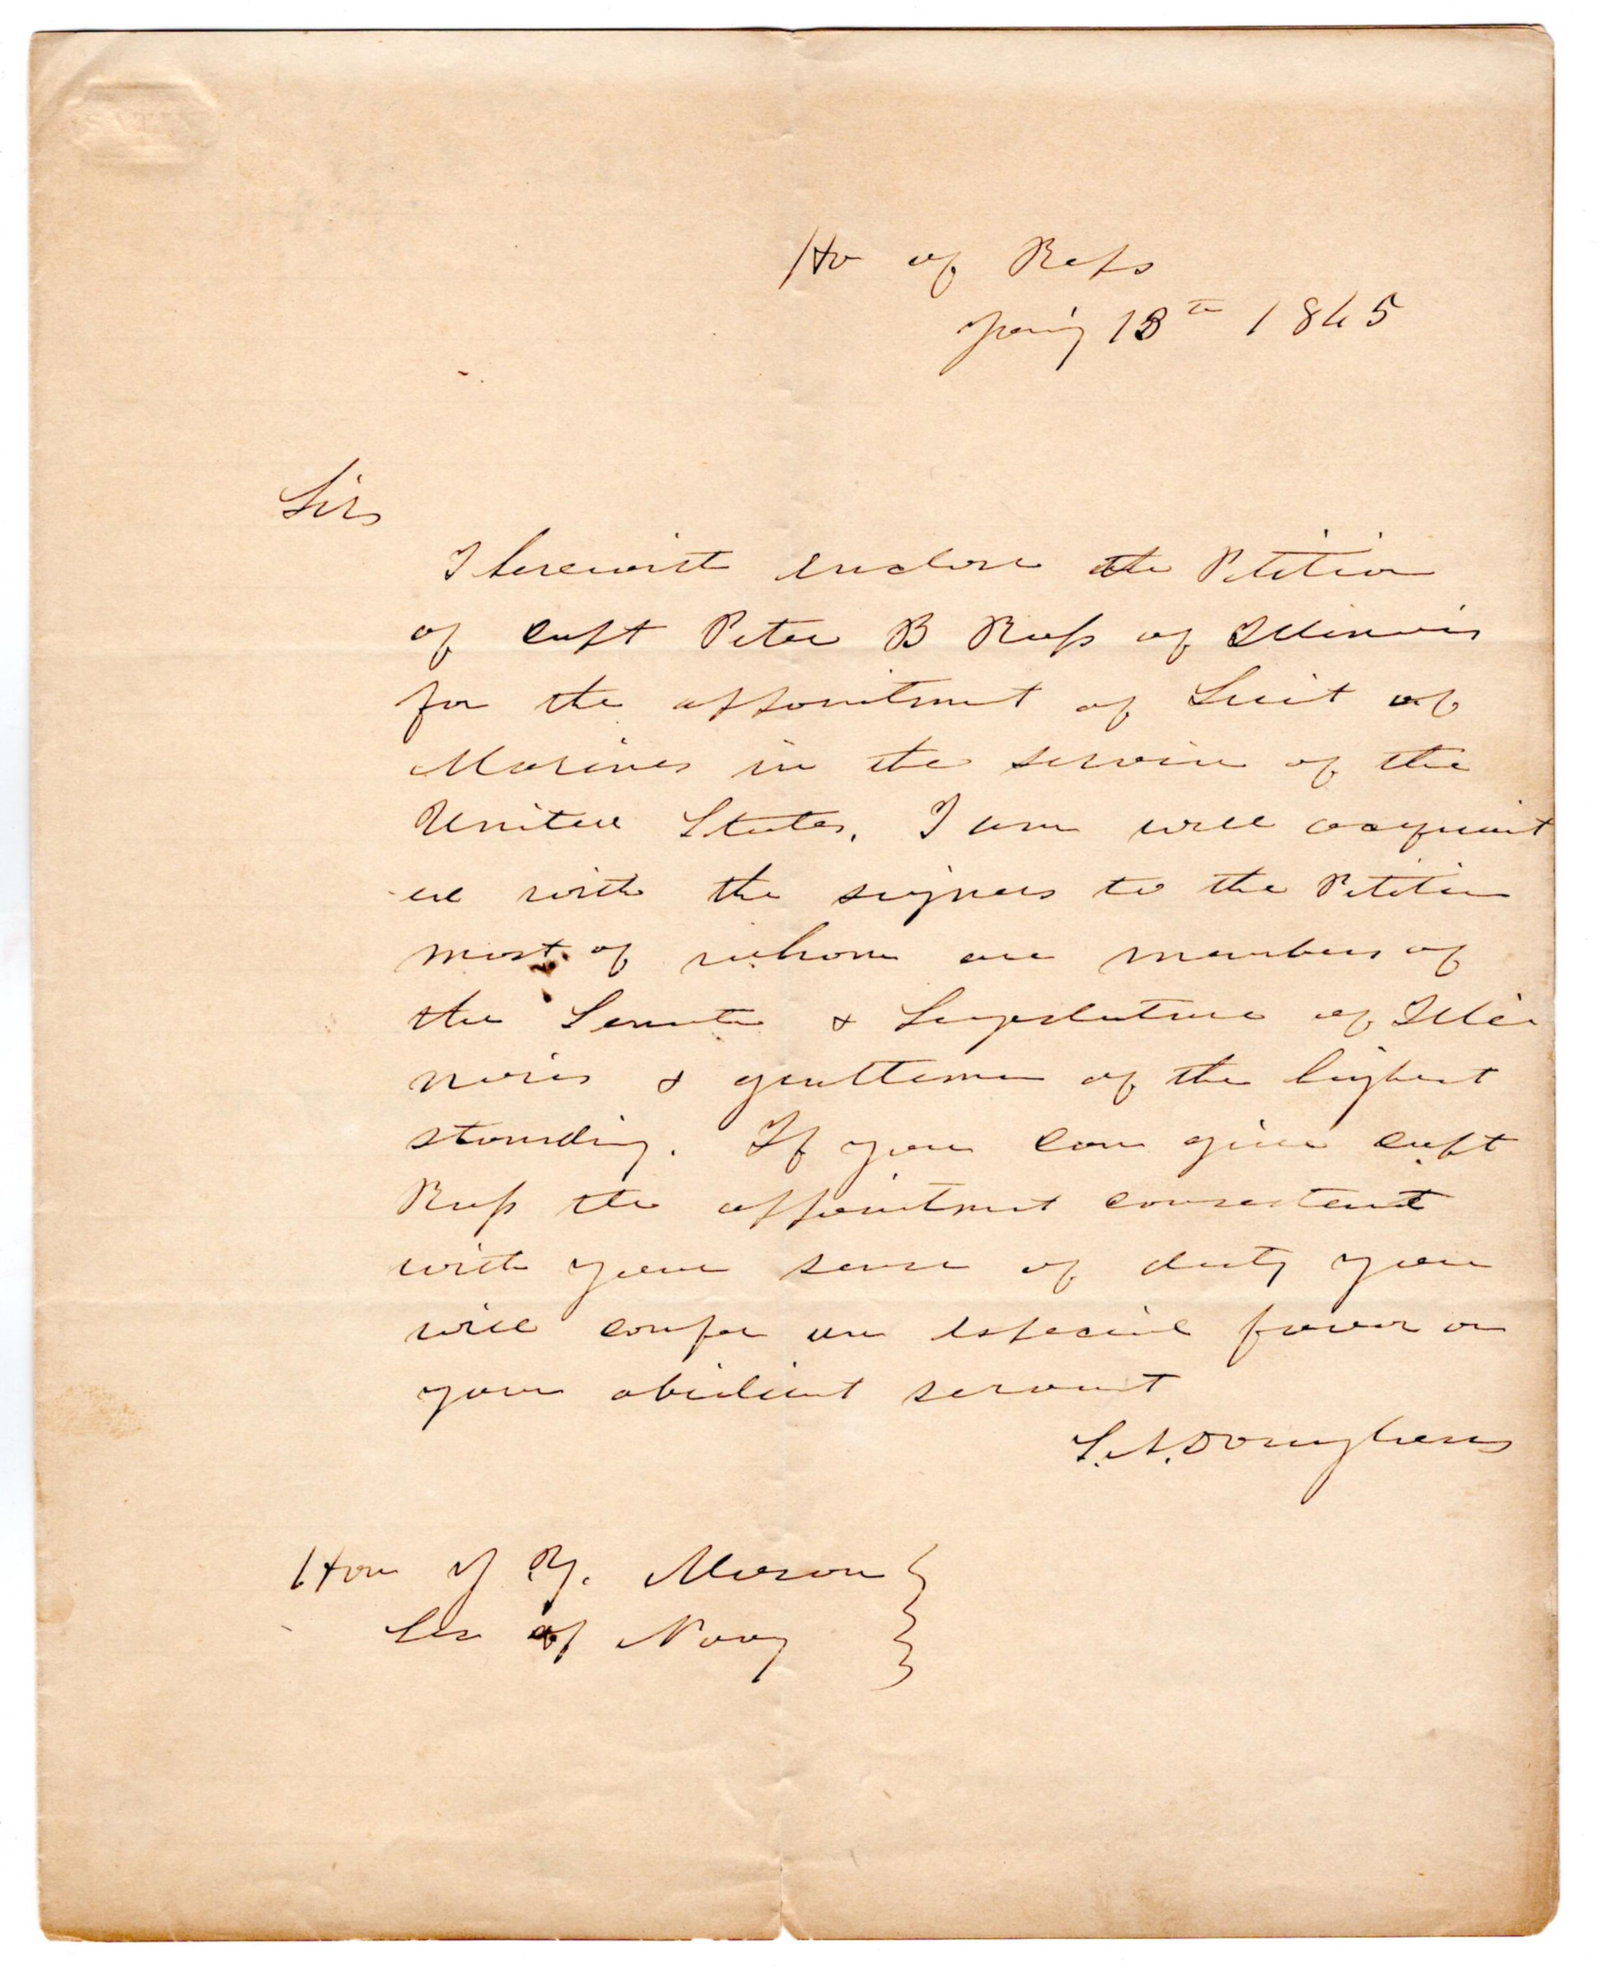 Ho of Reps
Jany 13th 1845
Sir
I herewith enclose the Petition
of Capt Peter B Russ of Illinois
for the appointment of Lieut of
Marines in the service of the
United States. I am well acquaint
ed with the signers to the Petition
most of whom are members of
the Senate & Legislature of Illi
nois & gentlemen of the highest
standing. If you can give Capt
Russ the appointment consistent
with your sense of duty you
will confer an especial favor on
your obidient servant
S.A. Douglass
Hon J Y. Mason
Sec of Navy